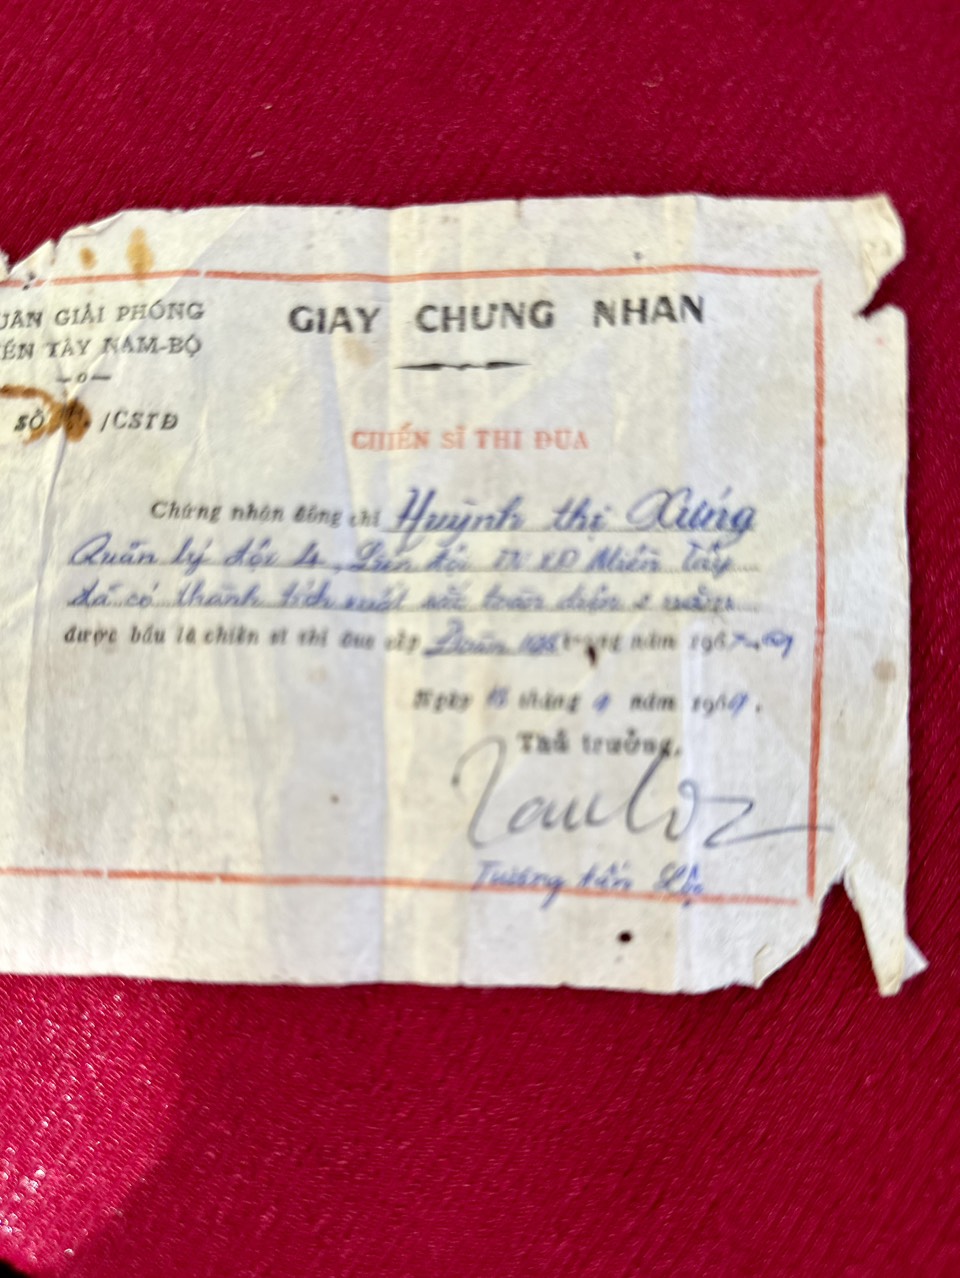 UÂN GIẢI PHÓNG
ỀN TÂY NAM-BỘ
—o—
SỐ /CSTĐ
GIAY CHƯNG NHAN
CHIẾN SĨ THI ĐUA
Chứng nhận đồng chí Huỳnh thị Xứng
Quản lý đội 4, Miền Tây
đã có thành tích xuất sắc toàn diện 2 năm
được bầu là chiến sĩ thi đua cấp Đoàn trong năm 1967-69
Ngày tháng năm 1969.
Thủ trưởng,
Tương tấn Lộc